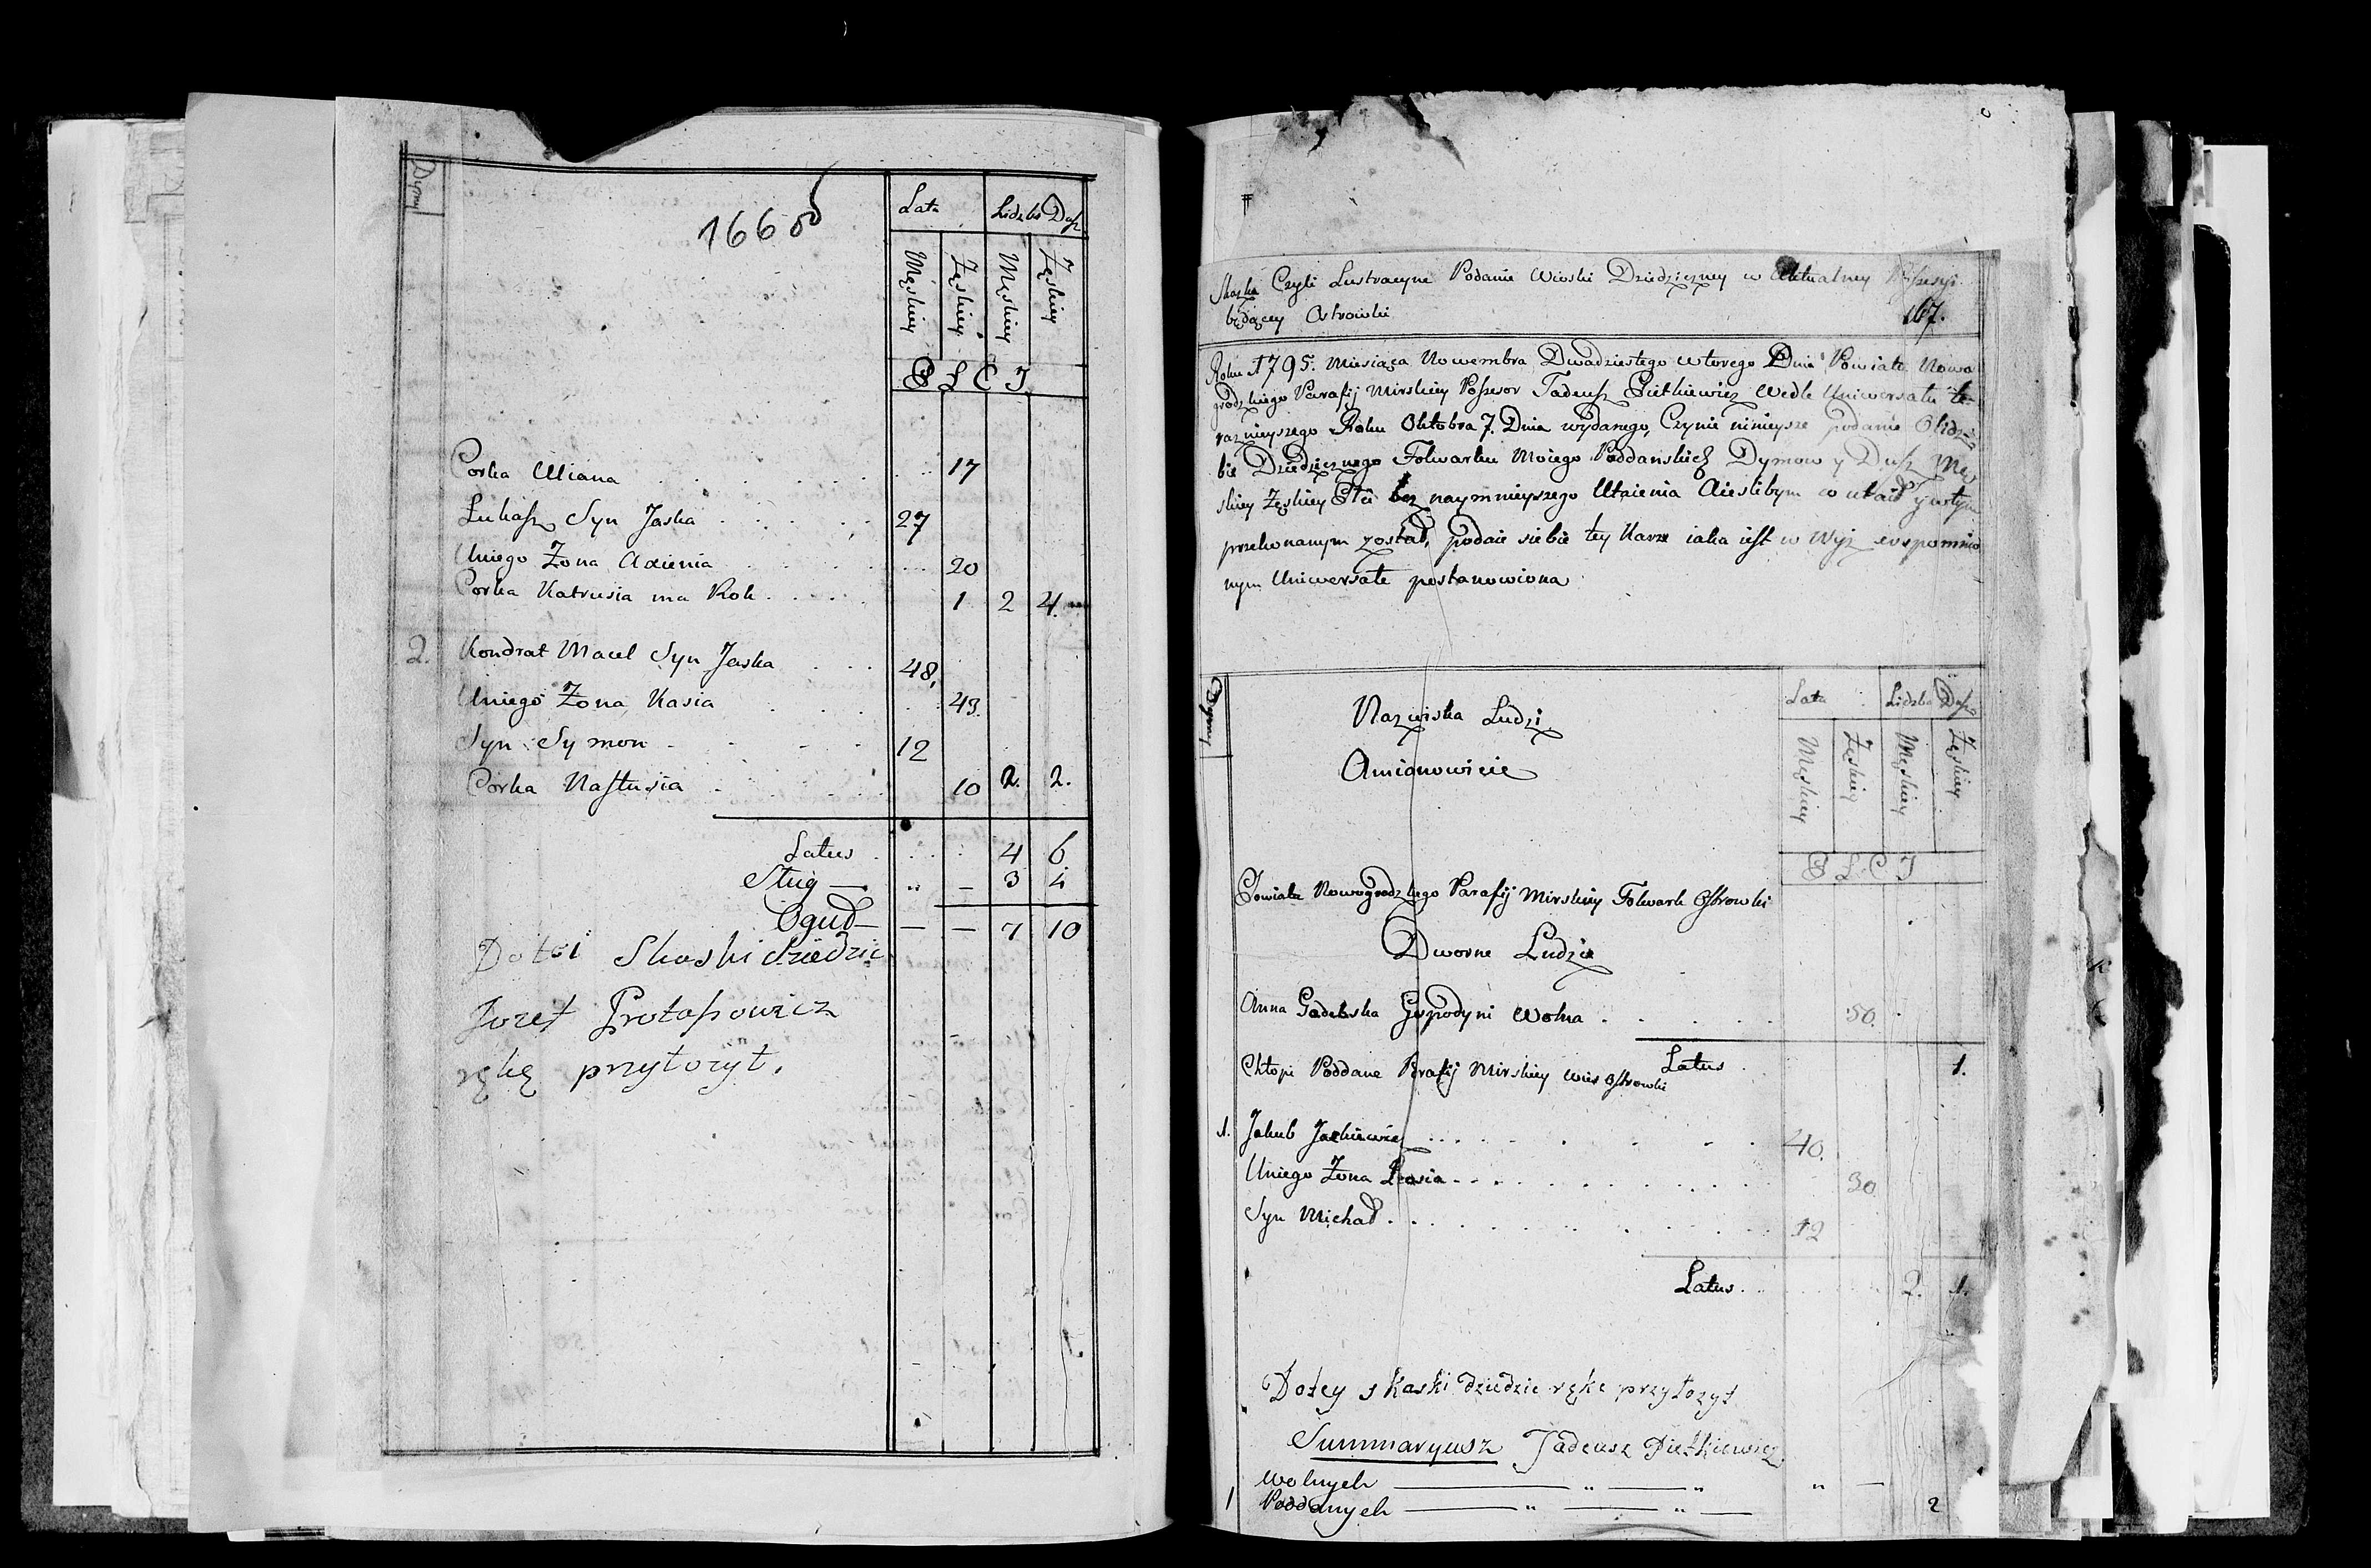 Dymy
1660
Lata Lidzba Dusz
Męskiey Żęskiey Męskiey Żęskiey
P Ł C I
Corka Uliana 17
Łukasz Syn Jaska 27
Uniego Żona Axienia 20
Corka Katrusia ma Rok 1 2 4
2. Kondrat Macel Syn Jaska 48
Uniego Żona Kasia 43
Syn Symon 12
Corka Nastusia 10 2. 2.
Latus 4 6
Sług — " — 3 4
Oguł — — — 7 10
Do tei Skaski dziedzic
Jozef Protasowicz
rękę przytozyt.
Skazka Czyli Lustracyne Podanie Wioski Dziedziczney w Aktualney Possesyi
będącey Ostrowki
167.
Roku 1795. Miesiąca Nowembra Dwadziestego wtorego Dnia Powiatu Nowo
grodzkiego Parafij Mirskiey Possesor Tadeusz Pietkiewicz wedle Uniwersału te
raznieyszego Roku Oktobra 7. Dnia wydanego, Czynie ninieysze podanie Olidz
bie Dziedzicznego Folwarku Moiego Poddanskich Dymow y Dusz Męs
skiey Żęskiey Płci bez naymnieyszego Utaienia Aieslibym co utaił y wtym
przekonanym został, podaie siebie tey Karze iaka iest w Wyż wspomnio
nym Uniwersale postanowiona
Dymy
Nazwiska Ludzi
Amianowicie
Lata Lidzba Dusz
Męskiey Żęskiey Męskiey Żęskiey
P Ł C I
Powiatu Nowogrodzkiego Parafij Mirskiey Folwark Ostrowki
Dworne Ludzie
Anna Gadebska Gospodyni Wolna 50.
Latus 1.
Chłopi Poddane Parafij Mirskiey wies Ostrowki
1. Jakub Jackiewicz 40.
Uniego Żona 30
Syn Michał 12
Latus 2. 1.
Dotey skaski dziedzic ręke przytozyt
Summaryusz Tadeusz Pietkiewicz
Wolnych — " — " " —
1 Poddanych — " — " — 2